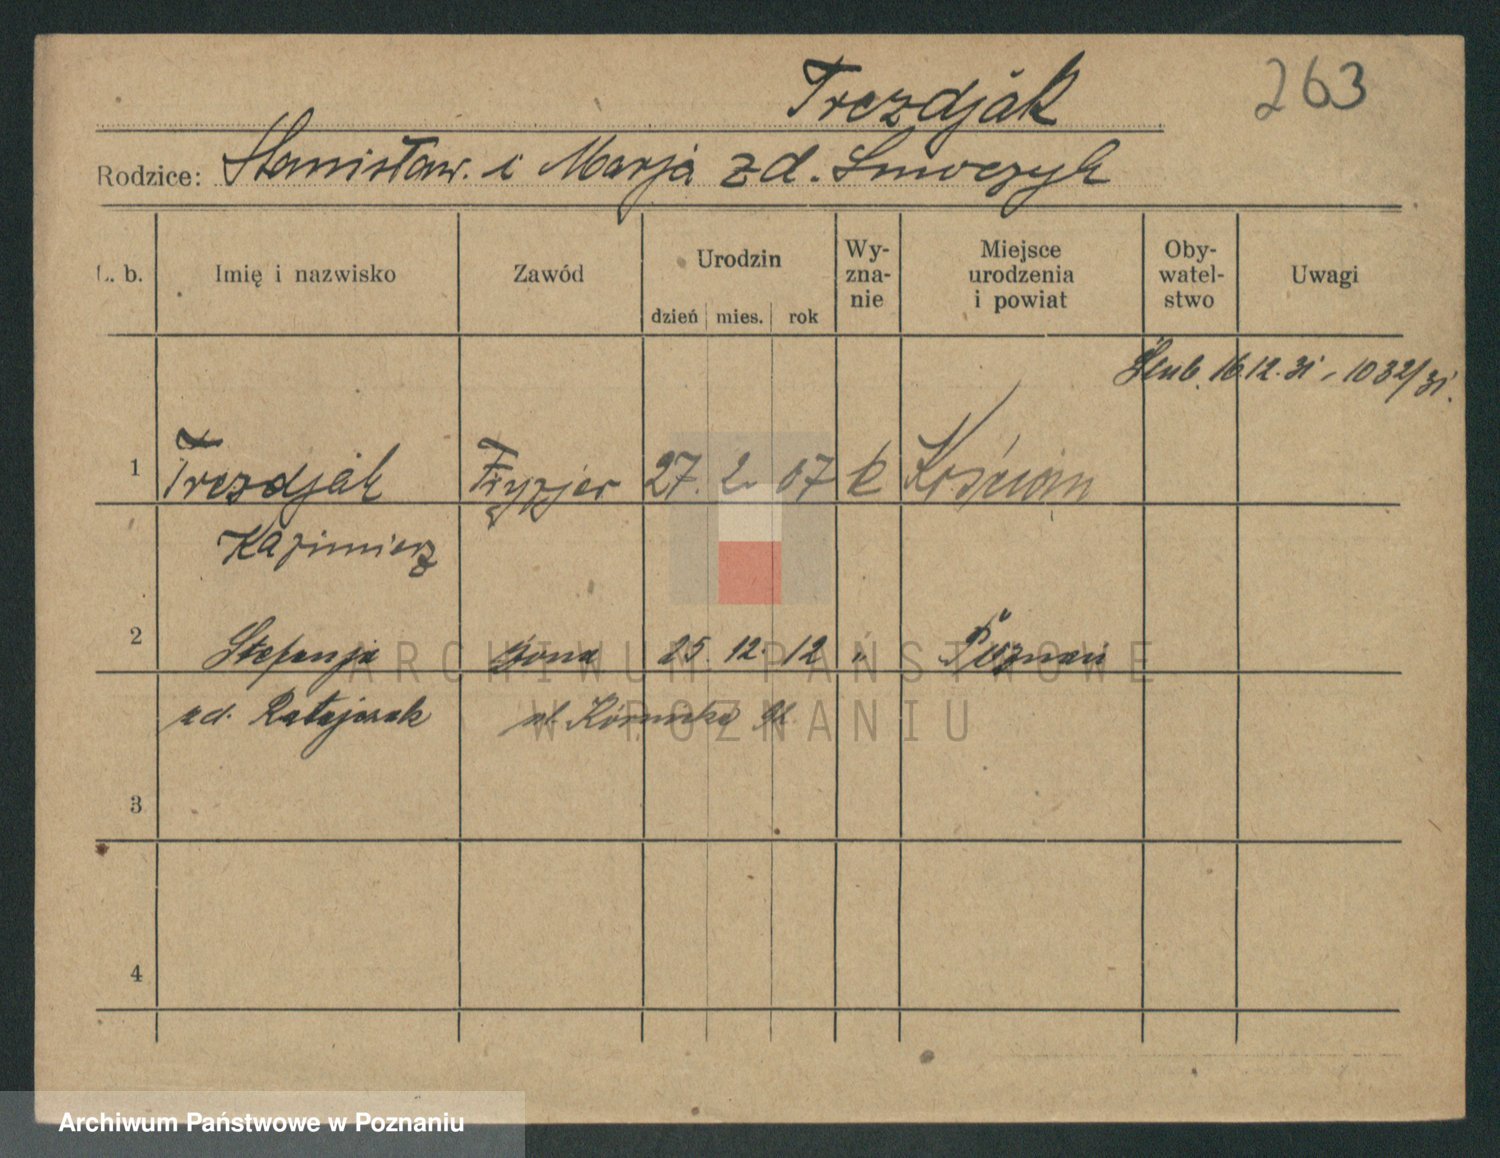 Trezdjak 263
Rodzice: Stanisław. i Marja zd. Smoczyk
L. b. Imię i nazwisko Zawód Urodzin dzień mies. rok Wy-zna-nie Miejsce urodzenia i powiat Oby-watel-stwo Uwagi
Ślub 16.12.31 - 1032/31.
1 Trezdjak Fryzjer 27. 2. 07 k Kościan
Kazimierz
2 Stefanja żona 25. 12. 12 " Poznań
zd. Ratajczak ul. Kórnicka
3
4
ARCHIWUM PAŃSTWOWE
W POZNANIU
Archiwum Państwowe w Poznaniu